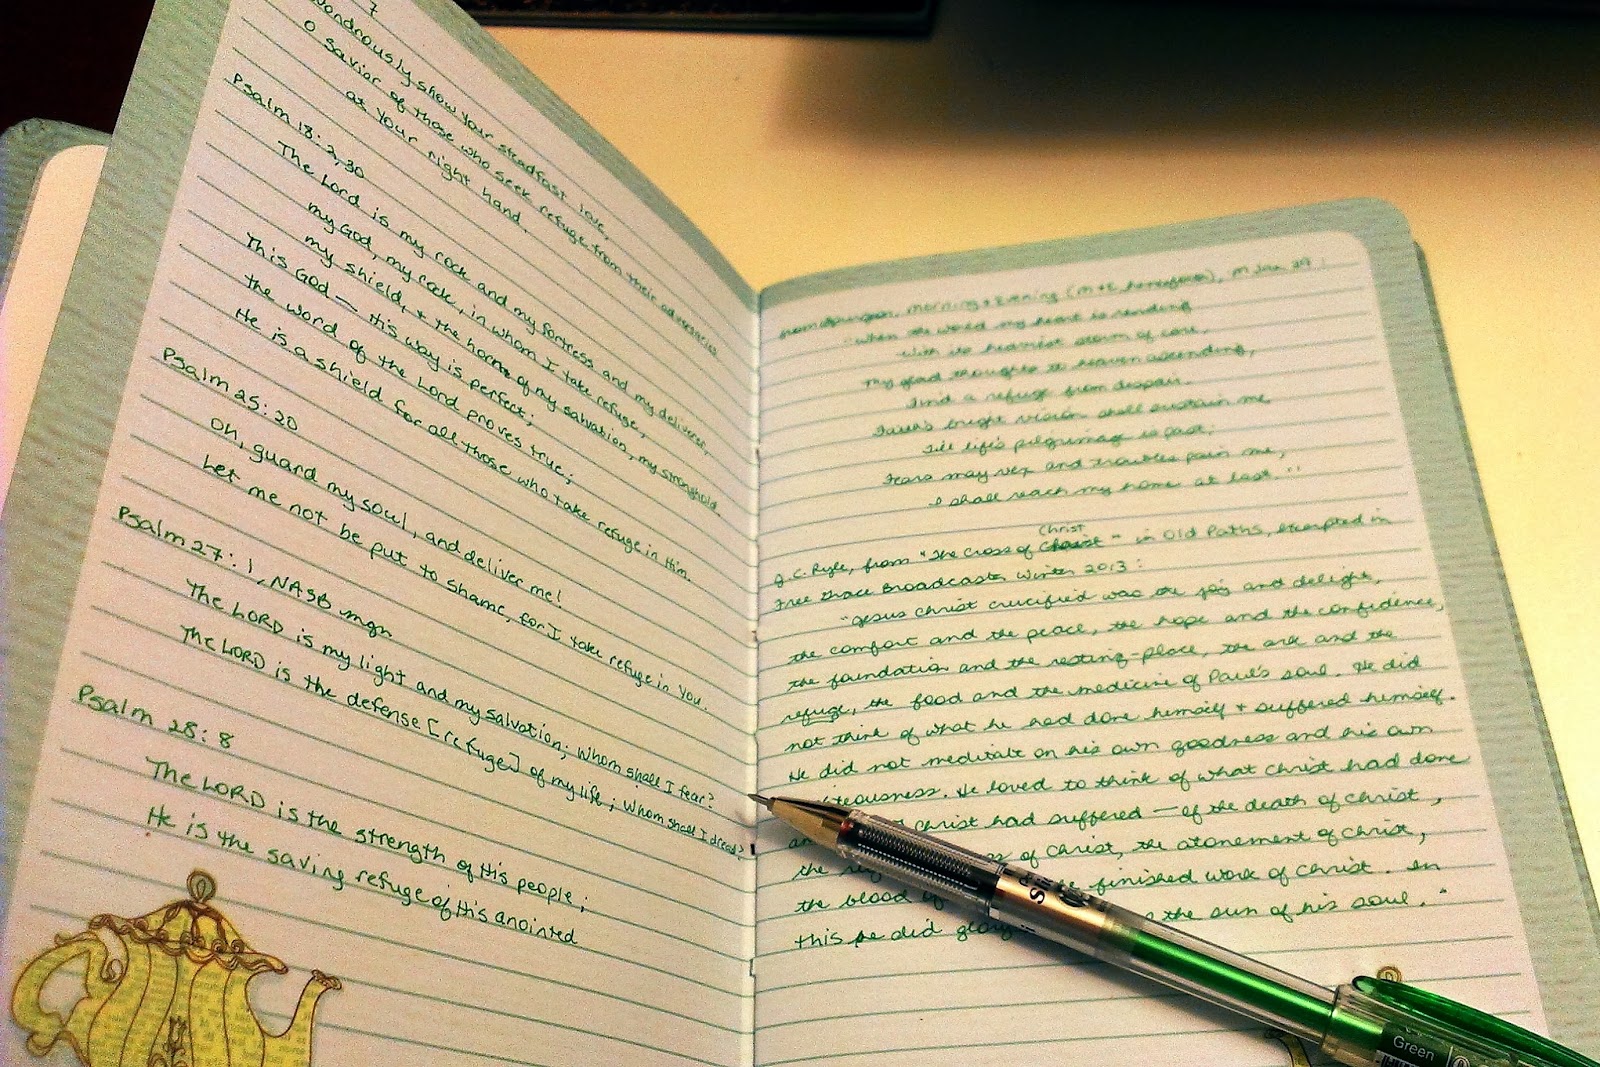 7
Wondrously show Your steadfast love,
O Savior of those who seek refuge from their adversaries
at Your right hand.
Psalm 18:2,30
The Lord is my rock and my fortress and my deliverer,
my God, my rock, in whom I take refuge,
my shield, + the horn of my salvation, my stronghold.
This God — His way is perfect;
the word of the Lord proves true;
He is a shield for all those who take refuge in Him.
Psalm 25:20
Oh, guard my soul, and deliver me!
Let me not be put to shame, for I take refuge in You.
Psalm 27:1, NASB mgn
The LORD is my light and my salvation; Whom shall I fear?
The LORD is the defense [refuge] of my life; Whom shall I dread?
Psalm 28:8
The LORD is the strength of His people;
He is the saving refuge of His anointed
from Spurgeon, Morning + Evening (M+E, henceforth), M Jan 29:
"When the world my heart is rending
With its heaviest storm of care,
My glad thoughts to heaven ascending,
Find a refuge from despair.
Faith's bright vision shall sustain me
Till life's pilgrimage is past;
Fears may vex and troubles pain me,
I shall reach my home at last."
Christ
J.C. Ryle, from "The Cross of Christ" in Old Paths, excerpted in
Free Grace Broadcaster Winter 2013:
"Jesus Christ crucified was the joy and delight,
the comfort and the peace, the hope and the confidence,
the foundation and the resting-place, the ark and the
refuge, the food and the medicine of Paul's soul. He did
not think of what he had done himself + suffered himself.
He did not meditate on his own goodness and his own
teousness. He loved to think of what Christ had done
an Christ had suffered — of the death of Christ,
the of Christ, the atonement of Christ,
the blood finished work of Christ. In
this he did glory the sun of his soul."
Green